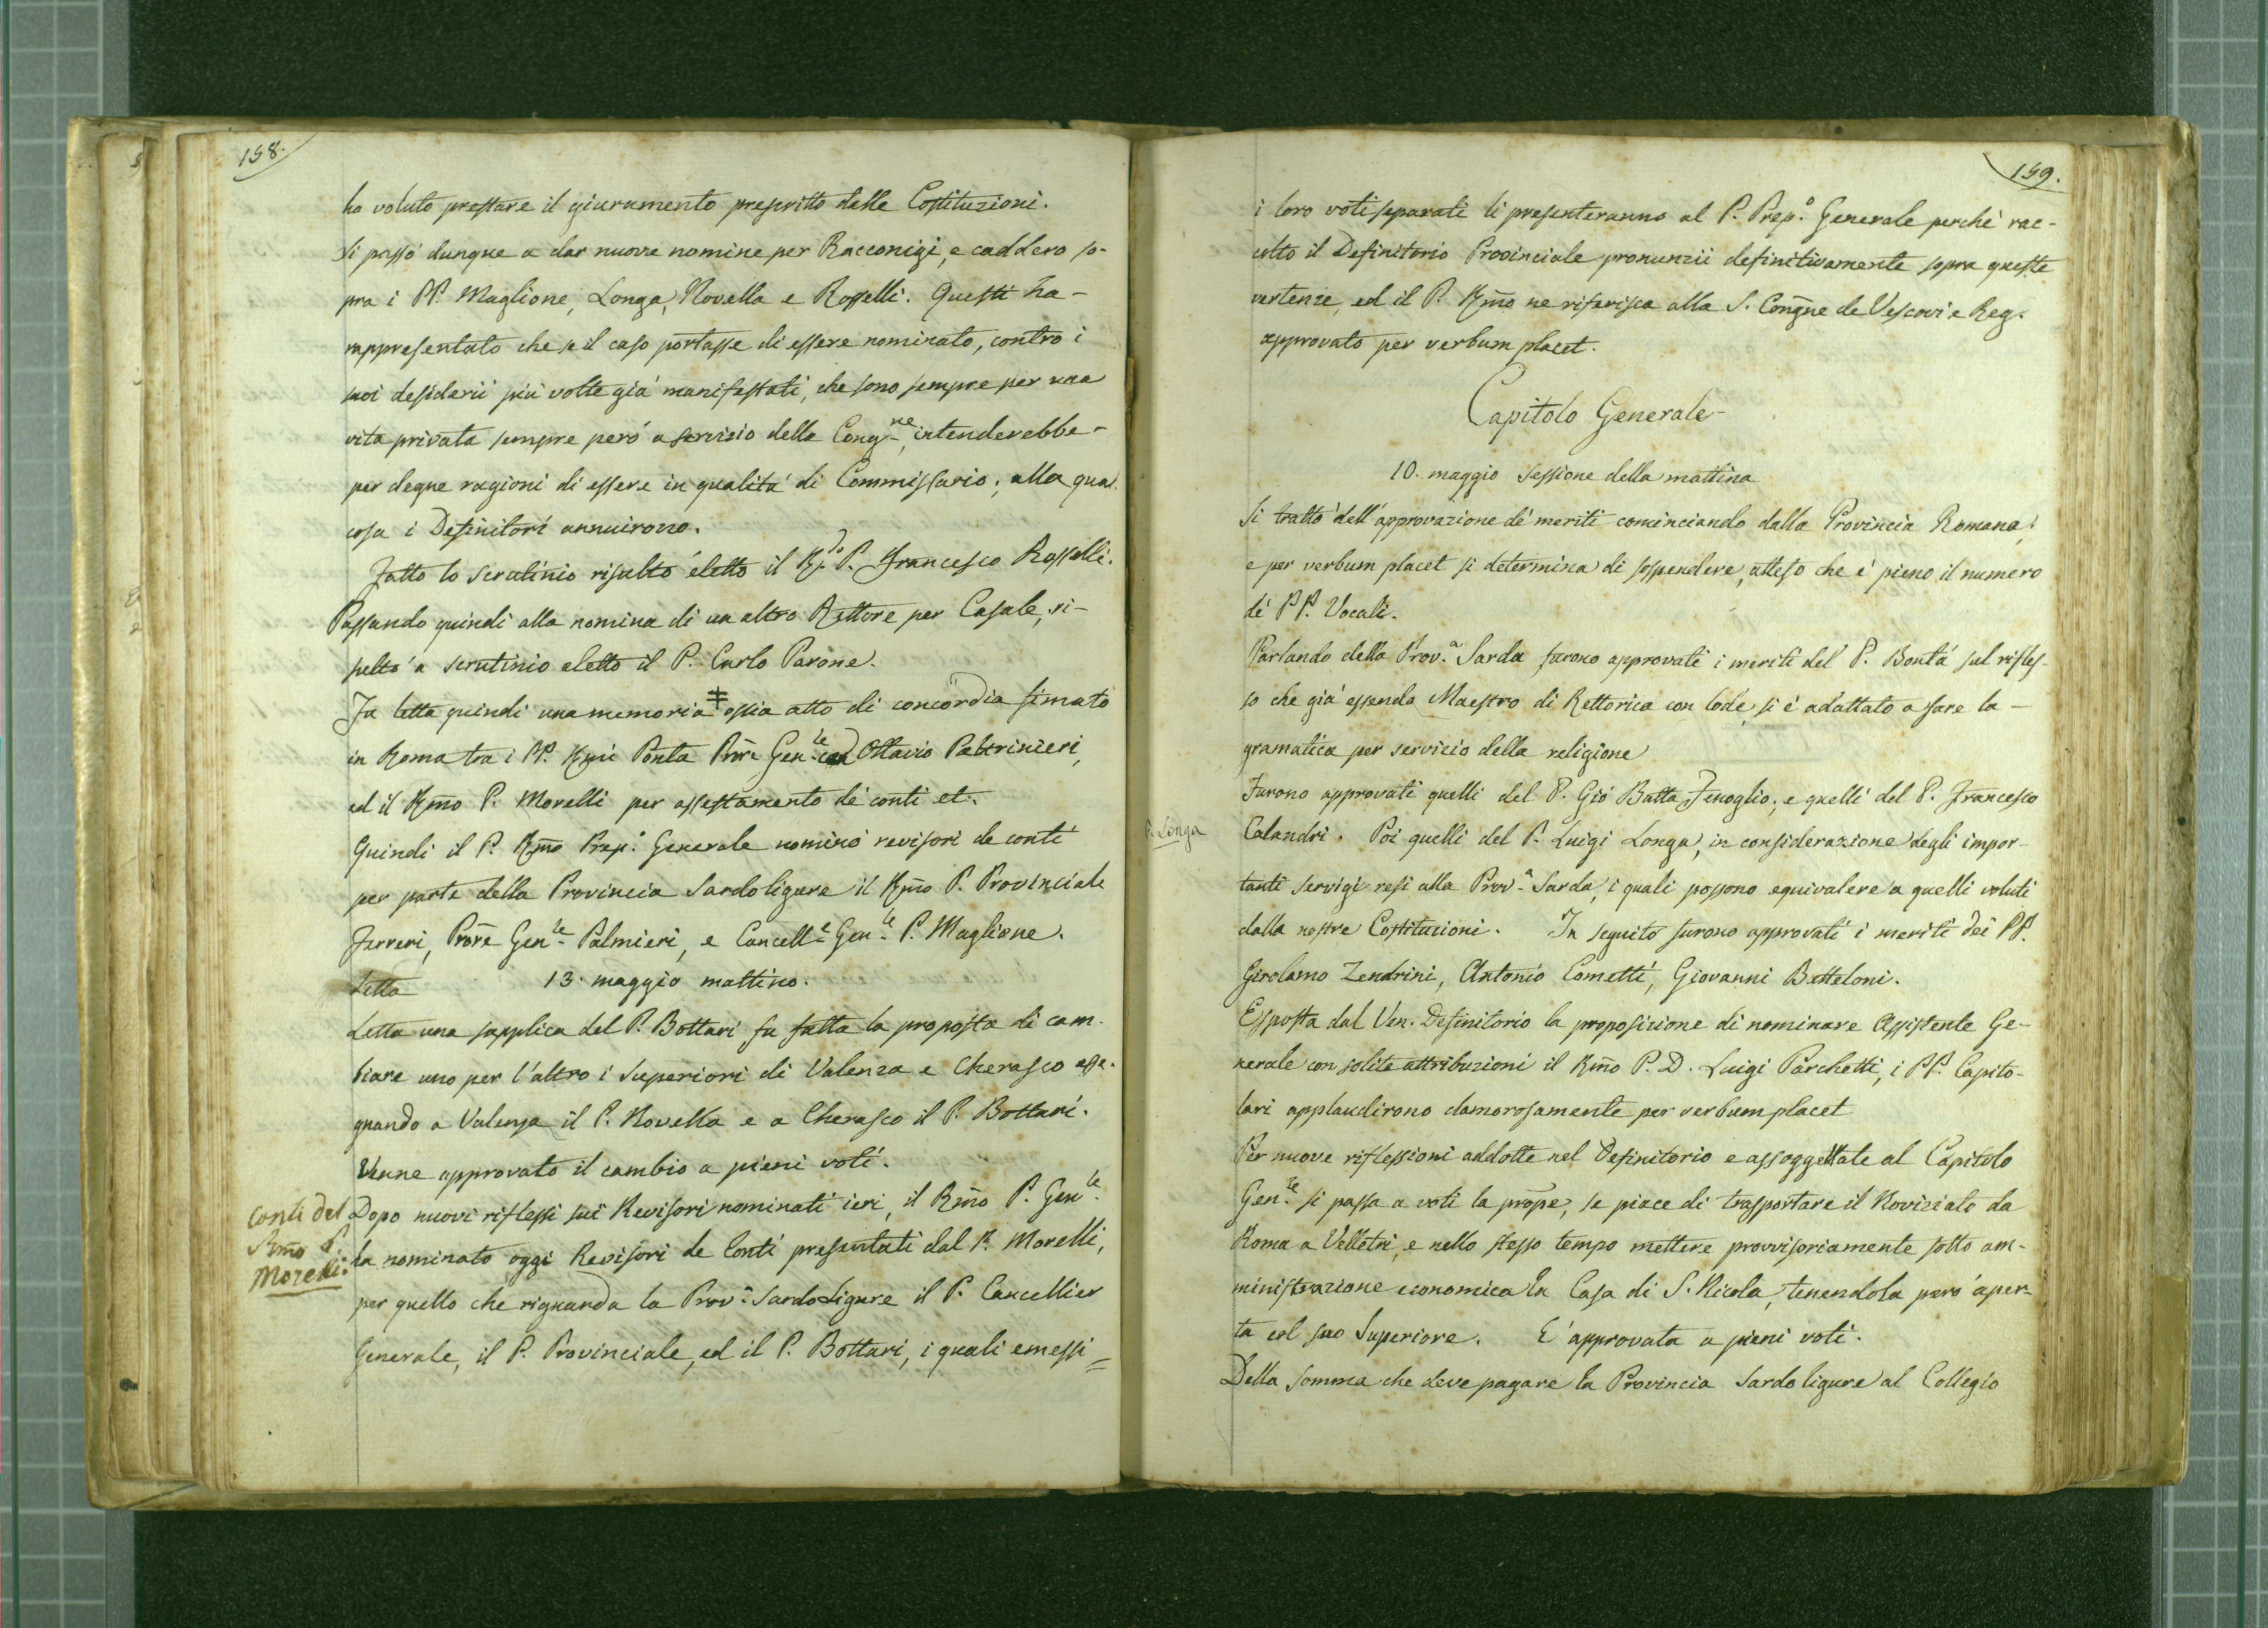 158.
ha voluto prestare il giuramento prescritto dalle Costituzioni.
Si passò dunque a dar nuove nomine per Racconigi, e caddero so-
pra i PP. Maglione, Longa, Novella e Rosselli. Questi ha-
rappresentato che se il caso portasse di essere nominato, contro i
suoi desiderii più volte già manifestati, che sono sempre per una
vita privata sempre però a servizio della Cong.ne, intenderebbe-
per degne ragioni di essere in qualità di Commissario; alla qual
cosa i Definitori annuirono.
Fatto lo scrutinio risultò eletto il R.do P. Francesco Rosselli.
Passando quindi alla nomina di un altro Rettore per Casale, ri-
sultò a scrutinio eletto il P. Carlo Parone.
Fu letta quindi una memoria ossia atto di concordia firmato
in Roma tra i PP. Rmi Ponta Prore Gen.le Ottavio Paltrinieri,
ed il Rmo P. Morelli per assestamento de' conti et.
Quindi il P. Rmo Prep.o Generale nominò revisori de conti
per parte della Provincia Sardoligure il Rmo P. Provinciale
Ferreri, Prore Gen.le Palmieri, e Cancell.e Gen.le P. Maglione.
Letta 13. maggio mattino.
Letta una supplica del P. Bottari fu fatta la proposta di cam-
biare uno per l'altro i Superiori di Valenza e Cherasco asse-
gnando a Valenza il P. Novella e a Cherasco il P. Bottari.
Venne approvato il cambio a pieni voti.
Conti del
Rmo P.
Morelli:
Dopo nuovi riflessi sui Revisori nominati ieri, il Rmo P. Gen.le
ha nominato oggi Revisori de Conti presentati dal P. Morelli,
per quello che riguarda la Prov.a SardoLigure il P. Cancellier
Generale, il P. Provinciale, ed il P. Bottari, i quali emessi =
159.
i loro voti separati li presenteranno al P. Prep.o Generale perchè rac-
colto il Definitorio Provinciale pronunzii definitivamente sopra queste
vertenze, ed il P. Rmo ne riferisca alla S. Congne de Vescovi e Reg.
approvato per verbum placet.
Capitolo Generale-
10. maggio sessione della mattina
Si trattò dell'approvazione de' meriti cominciando dalla Provincia Romana;
e per verbum placet si determina di sospendere, atteso che è pieno il numero
de' PP. Vocali.
Parlando della Prov.a Sarda furono approvati i meriti del P. Bontà sul rifles-
so che già essendo Maestro di Rettorica con lode, si è adattato a fare la -
gramatica per servizio della religione
Furono approvati quelli del P. Giò Batta Fenoglio, e quelli del P. Francesco
P. Longa
Calandri. Poi quelli del P. Luigi Longa, in considerazione degli impor-
tanti servigi resi alla Prov.a Sarda, i quali possono equivalere a quelli voluti
dalla nostre Costituzioni. In seguito furono approvati i meriti dei PP.
Girolamo Zendrini, Antonio Cometti, Giovanni Betteloni.
Esposta dal Ven. Definitorio la proposizione di nominare Assistente Ge-
nerale con solite attribuzioni il Rmo P. D. Luigi Parchetti, i PP. Capito-
lari applaudirono clamorosamente per verbum placet
Per nuove riflessioni addotte nel Definitorio e assoggettate al Capitolo
Gen.le si passa a voti la prope, se piace di trasportare il Noviziato da
Roma a Velletri, e nello stesso tempo mettere provvisoriamente sotto am-
ministrazione economica la Casa di S. Nicola, tenendola però aper-
ta col suo Superiore. E' approvata a pieni voti.
Della somma che deve pagare la Provincia Sardo ligure al Collegio